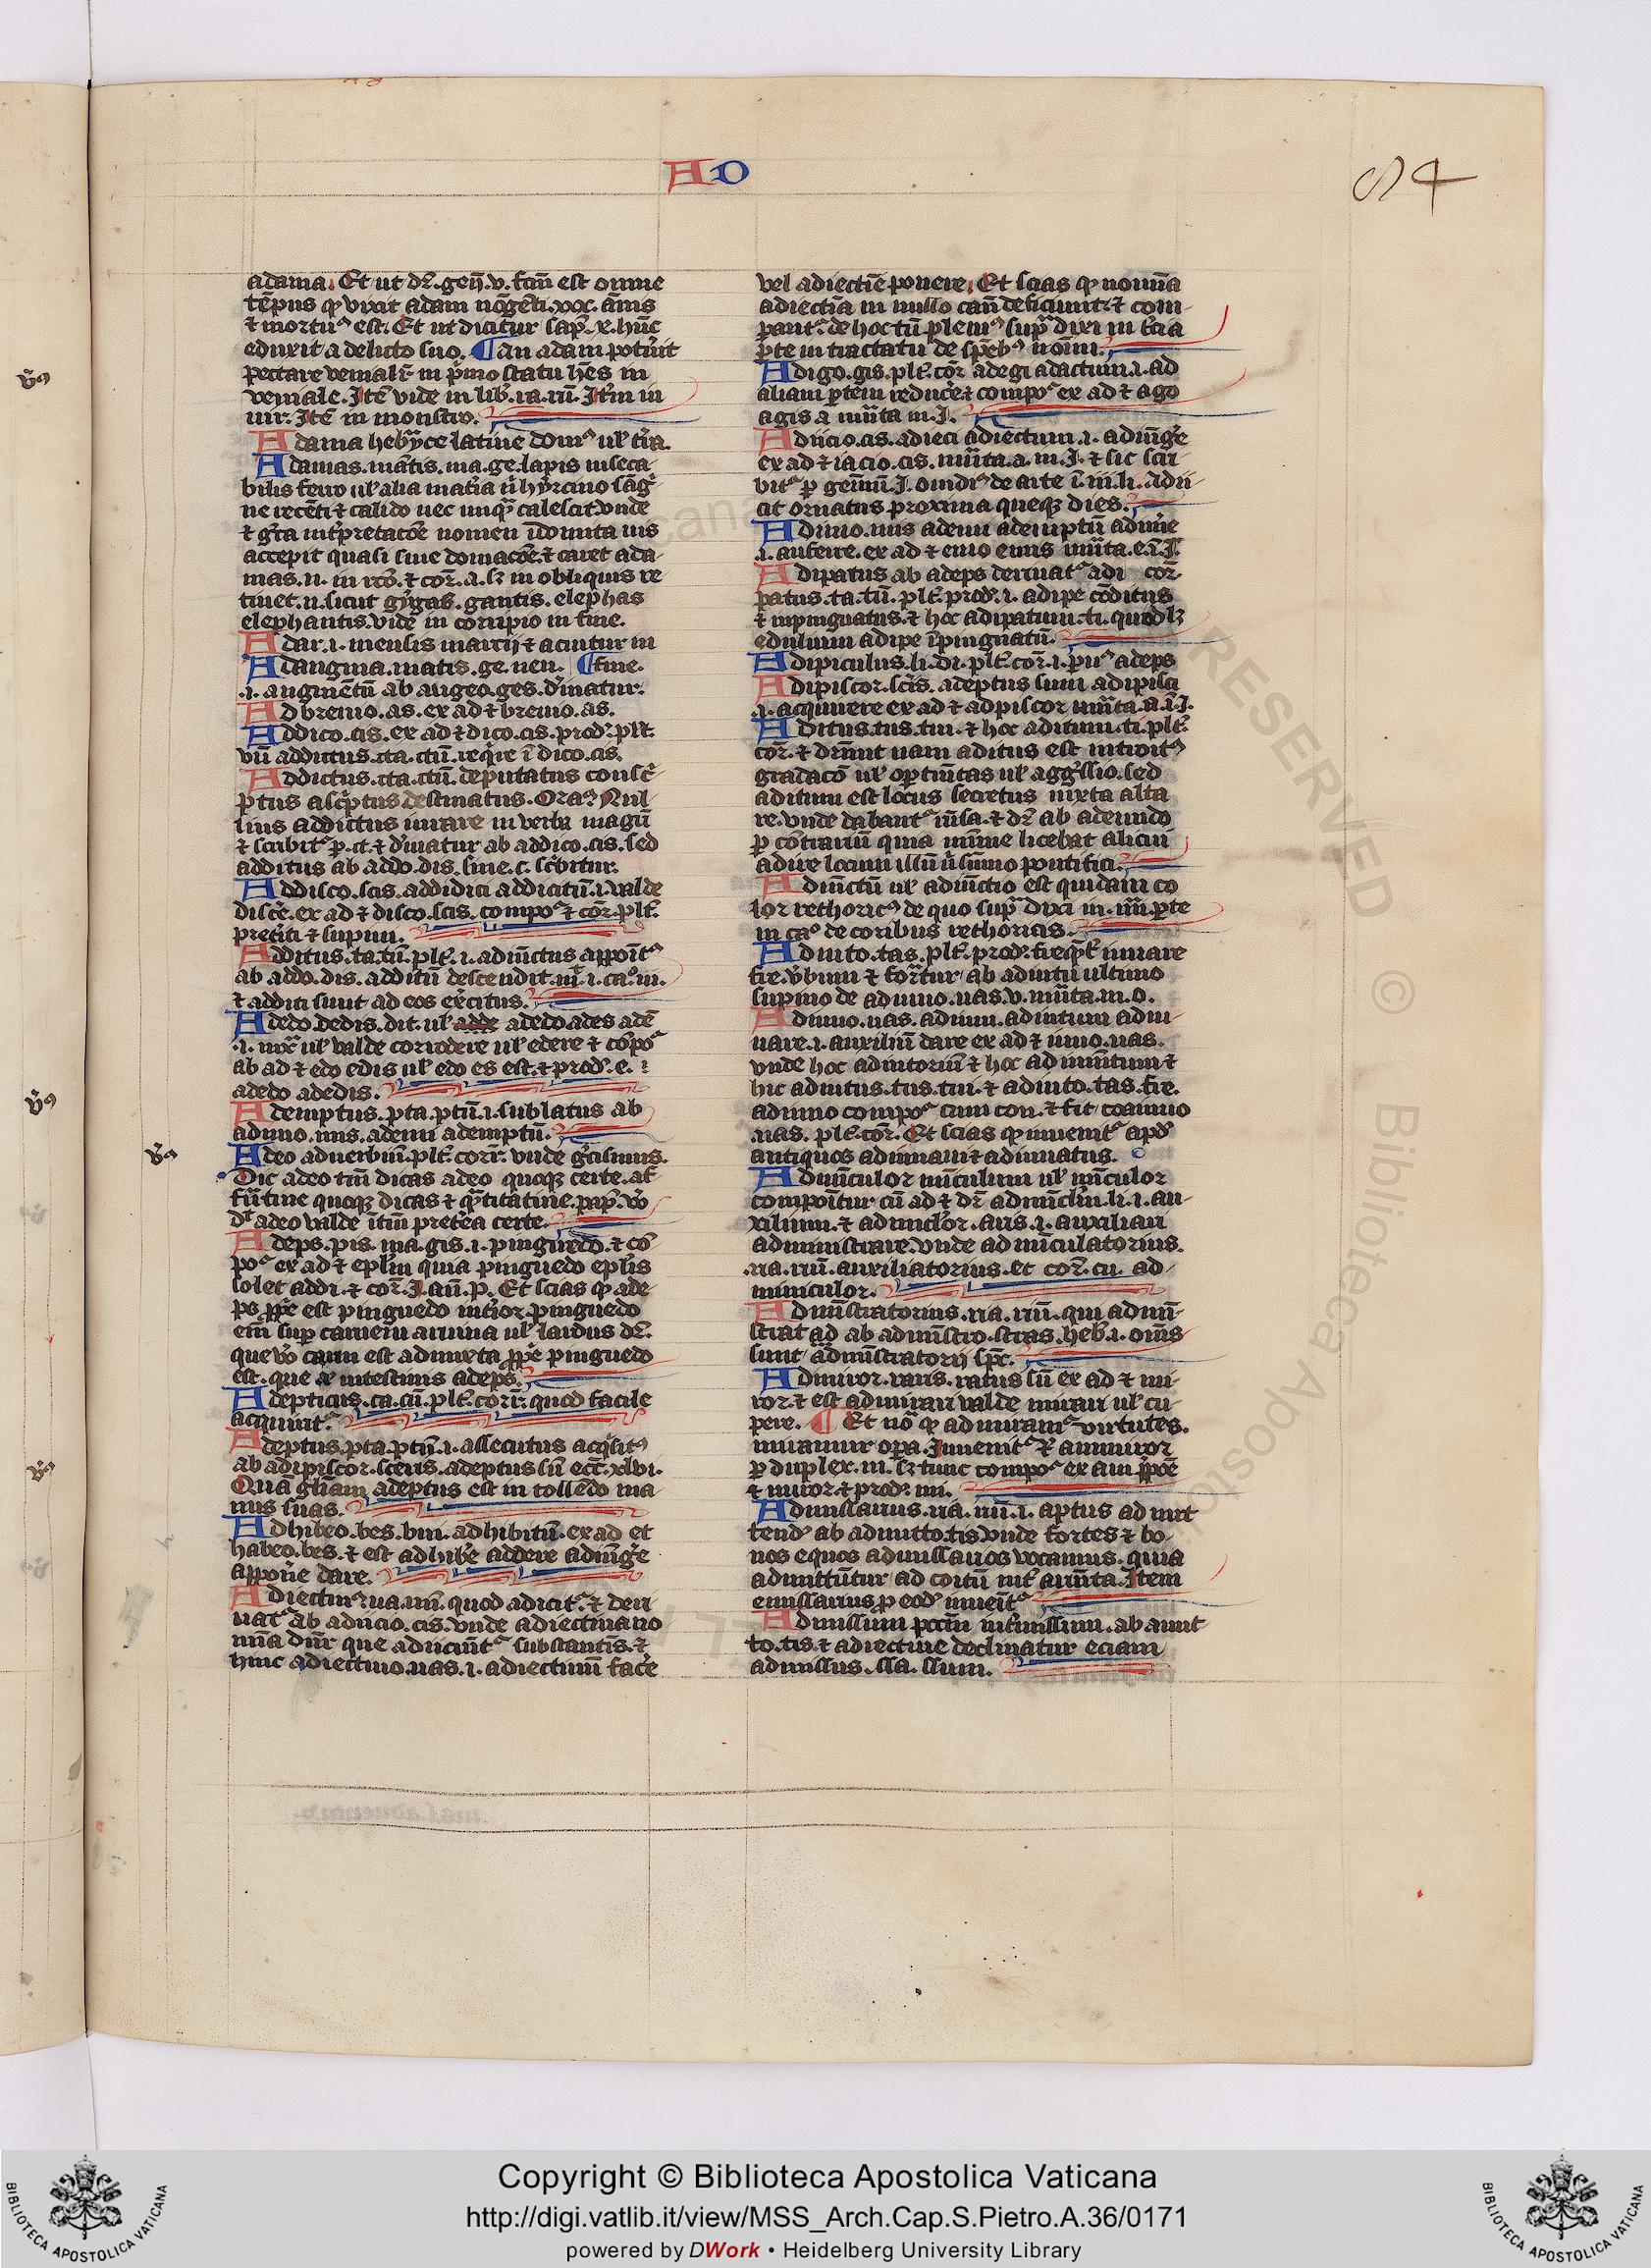 AD
84
adama. Et ut dr̄. geñ. v. fcm̄ est omne
tēpus qꝫ vixit adam nōgēti. xxx. annis
⁊ mortuꝰ est. Et ut dicitur sap̄. x. hūc
eduxit a delicto suo. ¶ An adam potūit
peccare venialr̄ in pͥmo statu
veniale. Itē vide in
uir. Itē in monstro.
Adama hebrͣyce latine domꝰ ul̓ tr̄a.
Adamas. mātis. ma. ge. lapis inseca-
bilis ferro ul̓ alia mat̄ia nͥ hyrcino sāgͥ-
ne recēti ⁊ calido nec unqͣ calescit. vnde
⁊ gͣca int̄pretacōe nomen īdomita uis
accepit quasi sine domacōe. ⁊ caret ada-
mas. n. in rc̄o. ⁊ cor̄. a. sꝫ in obliquis re
tinet. n. sicut gygas. gantis. elephas
elephantis. vide in corripio in fine.
Adar. i. mensis marcij ⁊ acuitur in
Adaugma. matis. ge. neu. ¶ fine.
.i. augmētū ab augeo. ges. dͥiuatur.
Adbreuio. as. ex ad ⁊ breuio. as.
Addico. cis. ex ad ⁊ dico. cis. prodͥ. plt̄.
vn̄ addictus. cta. ctū. reqͥre ī dico. cis.
Addictus. cta. ctū. deputatus conscͥ-
ptus ascͥptus destinatus. Oraꝰ Nul-
lius addictus iurare in verba magr̄i
⁊ scribitͬ ꝑ. ct. ⁊ dͥiuatur ab addico. cis. sed
additus ab addo. dis. sine. c. scͥbitur.
Addisco. scis. addidici addicitū. i. valde
discͤe. ex ad ⁊ disco. scis. compoͬ ⁊ cor̄. plt̄.
pretͥiti ⁊ supini.
Additus. ta. tū. plt̄. i. adiūctus appoītꝰ
ab addo. dis. additū descendit.
⁊ additi sunt ad eos exͤcitus.
Adedo. dedis. dit. ul̓ adde adedo ades adē
.i. ul̓ valde corrodere ul̓ edere ⁊ cōpoͬ
ab ad ⁊ edo edis ul̓ edo es est. ⁊ prodͥ. e. ī
adedo adedis.
Ademptus. pta. ptū. i. sublatus ab
adimo. mis. ademi ademptū.
Adeo aduerbiū. plt̄. corr̄. vnde gͤcismus.
Dic adeo tm̄ dicas adeo quoqꝫ certe. af-
fir̄tiue quoqꝫ dicas ⁊ qͣntitatiue. pap̄. vͦo
dͭ adeo valde ītm̄ pretͤea certe.
Adeps. pis. ma. gis. i. pinguedo. ⁊ cō
poͬ ex ad ⁊ eplīn quia pinguedo eplīs
solet addi. ⁊ cor̄. I. an̄. p. Et scias qꝫ ade
ps ꝓpͤ est pinguedo intͥior. pinguedo
em̄ suꝑ carnem aruina ul̓ lardus dr̄.
que vͦo carni est admixta ꝓpͤ pinguedo
est. que de intestinis adeps.
Adepticus. ca. cū. plt̄. corr̄. quod facile
acquiritͬ.
Adeptus. pta. ptū. i. assecutus acqͥsitꝰ
ab adipiscor. sceris. adeptus sū. ecc̄. xlvi.
Quā gl̄iam adeptus est in tollēdo ma-
nus suas.
Adhibeo. bes. bui. adhibitū. ex ad et
habeo. bes. ⁊ est adhibͤe addere adiūgͤe
apponͤe dare.
Adiectiuꝰ ua. um̄. quod adicitͬ. ⁊ deri
uatͬ ab adiicio. cis. vnde adiectiua no
mīa dnr̄ que adiiciūtͬ substantīs. ⁊
hinc adiectiuo. uas. i. adiectiuū facͤe
vel adiectiē ponere. Et scias qꝫ nomīa
adiectīa in nullo casu deficiunt. ⁊ com-
parātͬ. de hoc tn̄ pleniꝰ supͣ dixi in tͨia
ꝑte in tractatu de spēbꝰ noīm.
Adigo. gis. plt̄. cor̄. adegi adactum. i. ad
aliam ꝑtem reducͤe. ⁊ compoͬ ex ad ⁊ ago
agis a mutata in. I.
Adiicio. cis. adieci adiectum. i. adiūgͤe
ex ad ⁊ iacio. cis. mutata. a. in. I. ⁊ sic scri-
bitͬ ꝑ gemīū. I. ouidiꝰ de arte ī. iii. li. Adii-
cit ornatus proxima queqꝫ dies.
Adimo. mis ademi ademptū adimͤe
.i. auferre. ex ad ⁊ emo emis mutata. e. ī. I.
Adipatus ab adeps deriuatͬ adi cor̄.
patus. ta. tū. plt̄. prodͥ. i. adipe cōditus
⁊ inpinguatus. ⁊ hoc adipatum. ti. quodlꝫ
edulium adipe īpinguatū.
Adipiculus. li. di. plt̄. cor̄. i. ꝑuꝰ adeps
Adipiscor. scͥis. adeptus sum adipisci
.i. acquirere ex ad ⁊ adpiscor mutata. a. ī. I.
Aditus. tus. tui. ⁊ hoc aditum. ti. plt̄.
cor̄. ⁊ dr̄nūt nam aditus est introitꝰ
gradacō ul̓ oportūitas ul̓ aggͤssio. sed
aditum est locus secretus iuxta alta
re. vnde dabantͬ iūsa. ⁊ dr̄ ab adeundo
ꝑ cōtrariū quia minīe licebat alicui
adire locum illū nͥ sūmo pontifici.
Adiūctū ul̓ adiūctio est quidam co
lor rethoricꝰ de quo supͣ dixi in. iiii. ꝑte
in caͦ. de coribus rethoricis.
Adiuto. tas. plt̄. prodͥ. freqͭ iuuare
fre. vͤbum ⁊ forͣtur ab adiutu ultimo
supino de adiuuo. uas. v. mutata. in. o.
Adiuuo. uas. adiuui. adiutum adiu-
uare. i. auxiliū dare ex ad ⁊ iuuo. uas.
vnde hoc adiutoriū ⁊ hoc adiumētum ⁊
hic adiutus. tus. tui. ⁊ adiuto. tas. fre.
adiuuo compoͬ cum con. ⁊ fit coaiuuo
.uas. plt̄. cor̄. Et scias qꝫ inuenitͬ apd̓
antiquos adiuuaui ⁊ adiuuatus.
Admīculor mīculum ul̓ mīculor
componītur cū ad ⁊ dr̄ admīclm̄. li. i. au-
xilium. ⁊ adminclor. aris. i. auxiliari
administrare. vnde admīculatorius.
.ria. riū. auxiliatorius. et cor̄. cu. ad-
miniculor.
Admīstratorius. ria. riū. qui admī-
strat ad ab admīstro. stras. heb̓. i. oms̄
sunt admīstratorij spc̄.
Admiror. raris. ratus sū ex ad ⁊ mi-
ror. ⁊ est admirari valde mirari ul̓ cu-
pere. ¶ Et nō qꝫ admiramͬ virtutes.
miramur opa. Inuenitͬ ammiror
ꝑ duplex. m. sꝫ tunc compoͬ ex am p̄poē
⁊ miror. ⁊ prodͥ. mi.
Admissarius. ria. riū. i. aptus ad mit
tendͫ ab admitto. tis. vnde fortes ⁊ bo-
nos equos admissarios vocamus. quia
admittūtur ad coitū int̄ armēta. Item
emissarius ꝑ eodͤ inuēitͬ
Admissum pcc̄m intͥmissum. ab amit
to. tis. ⁊ adiectiue declinatur eciam
admissus. ssa. ssum.
Copyright © Biblioteca Apostolica Vaticana
http://digi.vatlib.it/view/MSS_Arch.Cap.S.Pietro.A.36/0171
powered by DWork • Heidelberg University Library